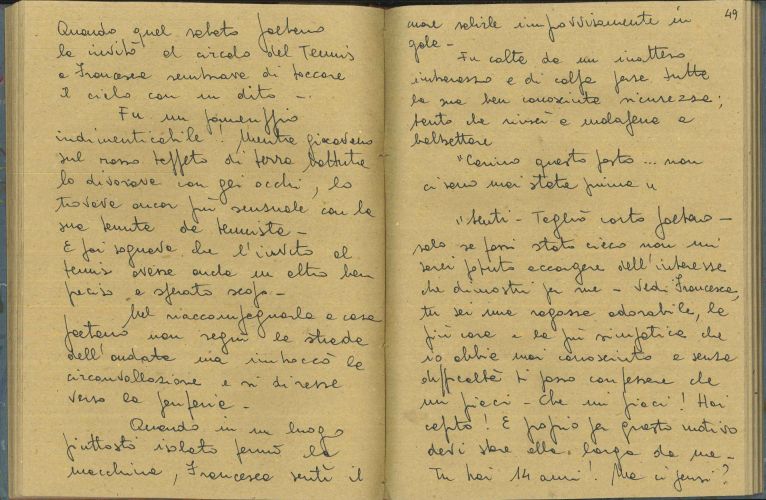 Quando quel sabato Gaetano
la invitò al circolo del Tennis
a Francesca sembrava di toccare
il cielo con un dito -.
Fu un pomeriggio
indimenticabile! Mentre giocavano
sul rosso tappeto di terra battuta
lo divorava con gli occhi, lo
trovava ancor più sensuale con la
sua tenuta da tennista -
E poi sognava che l'invito al
tennis avesse anche un altro ben
preciso e sperato scopo -
Nel riaccompagnarla a casa
Gaetano non seguì la strada
dell'andata ma imboccò la
circonvallazione e si diresse
verso la periferia -
Quando in un luogo
piuttosto isolato fermò la
macchina, Francesca sentì il
49
cuore salirle improvvisamente in
gola -
Fu colta da un inatteso
imbarazzo e di colpo perse tutta
la sua ben conosciuta sicurezza;
tanto che riuscì a malapena a
balbettare
"Carino questo posto ... non
ci sono mai stata prima "
"Senti - Tagliò corto Gaetano -
solo se fossi stato cieco non mi
sarei potuto accorgere dell'interesse
che dimostri per me - Vedi Francesca,
tu sei una ragazza adorabile, la
più cara e la più simpatica che
io abbia mai conosciuto e senza
difficoltà ti posso confessare che
mi piaci - Che mi piaci! Hai
capito! E proprio per questo motivo
devi stare alla larga da me -
Tu hai 14 anni! Ma ci pensi?